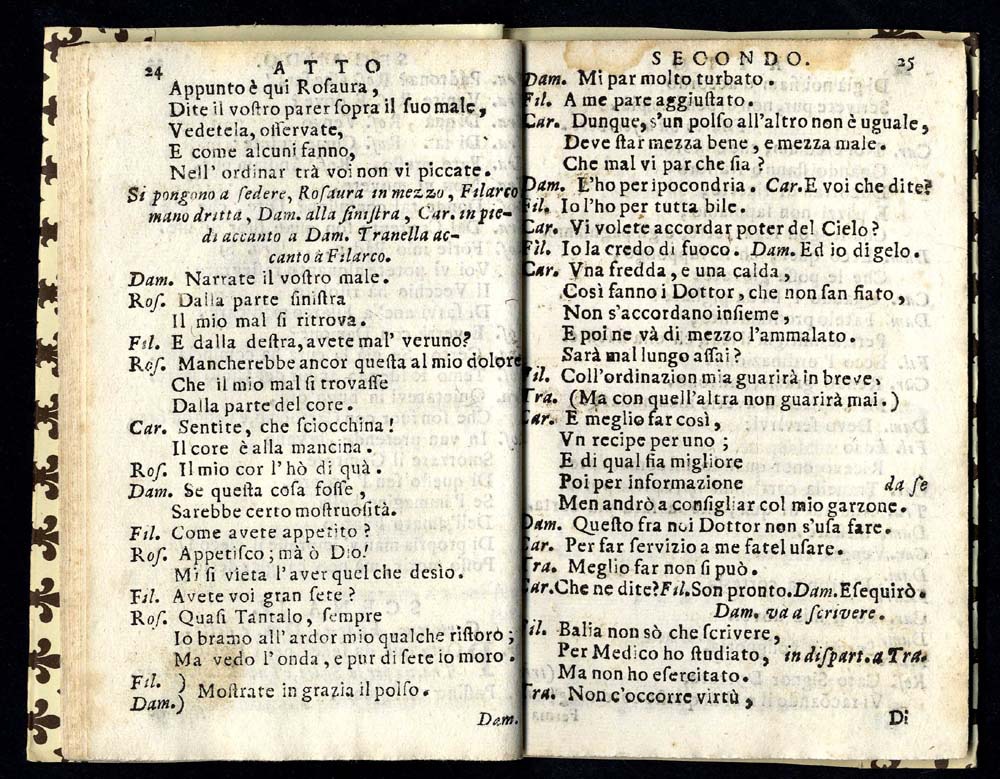 24 ATTO
Appunto è qui Rosaura,
Dite il vostro parer sopra il suo male,
Vedetela, osservate,
E come alcuni fanno,
Nell' ordinar trà voi non vi piccate.
Si pongono a sedere, Rosaura in mezzo, Filarco
mano dritta, Dam. alla sinistra, Car. in pie-
di accanto a Dam. Tranella ac-
canto à Filarco.
Dam. Narrate il vostro male.
Ros. Dalla parte sinistra
Il mio mal si ritrova.
Fil. E dalla destra, avete mal' veruno?
Ros. Mancherebbe ancor questa al mio dolore
Che il mio mal si trovasse
Dalla parte del core.
Car. Sentite, che sciocchina!
Il core è alla mancina.
Ros. Il mio cor l'hò di quà.
Dam. Se questa cosa fosse,
Sarebbe certo mostruosità.
Fil. Come avete appetito?
Ros. Appetisco; mà ò Dio!
Mi si vieta l'aver quel che desìo.
Fil. Avete voi gran sete?
Ros. Quasi Tantalo, sempre
Io bramo all'ardor mio qualche ristoro;
Ma vedo l'onda, e pur di sete io moro.
Fil. )
Dam.) Mostrate in grazia il polso.
Dam.
SECONDO. 25
Dam. Mi par molto turbato.
Fil. A me pare aggiustato.
Car. Dunque, s'un polso all'altro non è uguale,
Deve star mezza bene, e mezza male.
Che mal vi par che sia?
Dam. L'ho per ipocondria. Car. E voi che dite?
Fil. Io l'ho per tutta bile.
Car. Vi volete accordar poter del Cielo?
Fil. Io la credo di fuoco. Dam. Ed io di gelo.
Car. Vna fredda, e una calda,
Così fanno i Dottor, che non san fiato,
Non s'accordano insieme,
E poi ne và di mezzo l'ammalato.
Sarà mal lungo assai?
Fil. Coll'ordinazion mia guarirà in breve,
Tra. (Ma con quell'altra non guarirà mai.)
Car. E meglio far così,
Vn recipe per uno;
E di qual sia migliore
Poi per informazione da se
Men andrò a consigliar col mio garzone.
Dam. Questo fra noi Dottor non s'usa fare.
Car. Per far servizio a me fatel usare.
Tra. Meglio far non si può.
Car. Che ne dite? Fil. Son pronto. Dam. Esequirò.
Dam. va a scrivere.
Fil. Balia non sò che scrivere,
Per Medico ho studiato, in dispart. a Tra.
Ma non ho esercitato.
Tra. Non c'occorre virtù,
Di